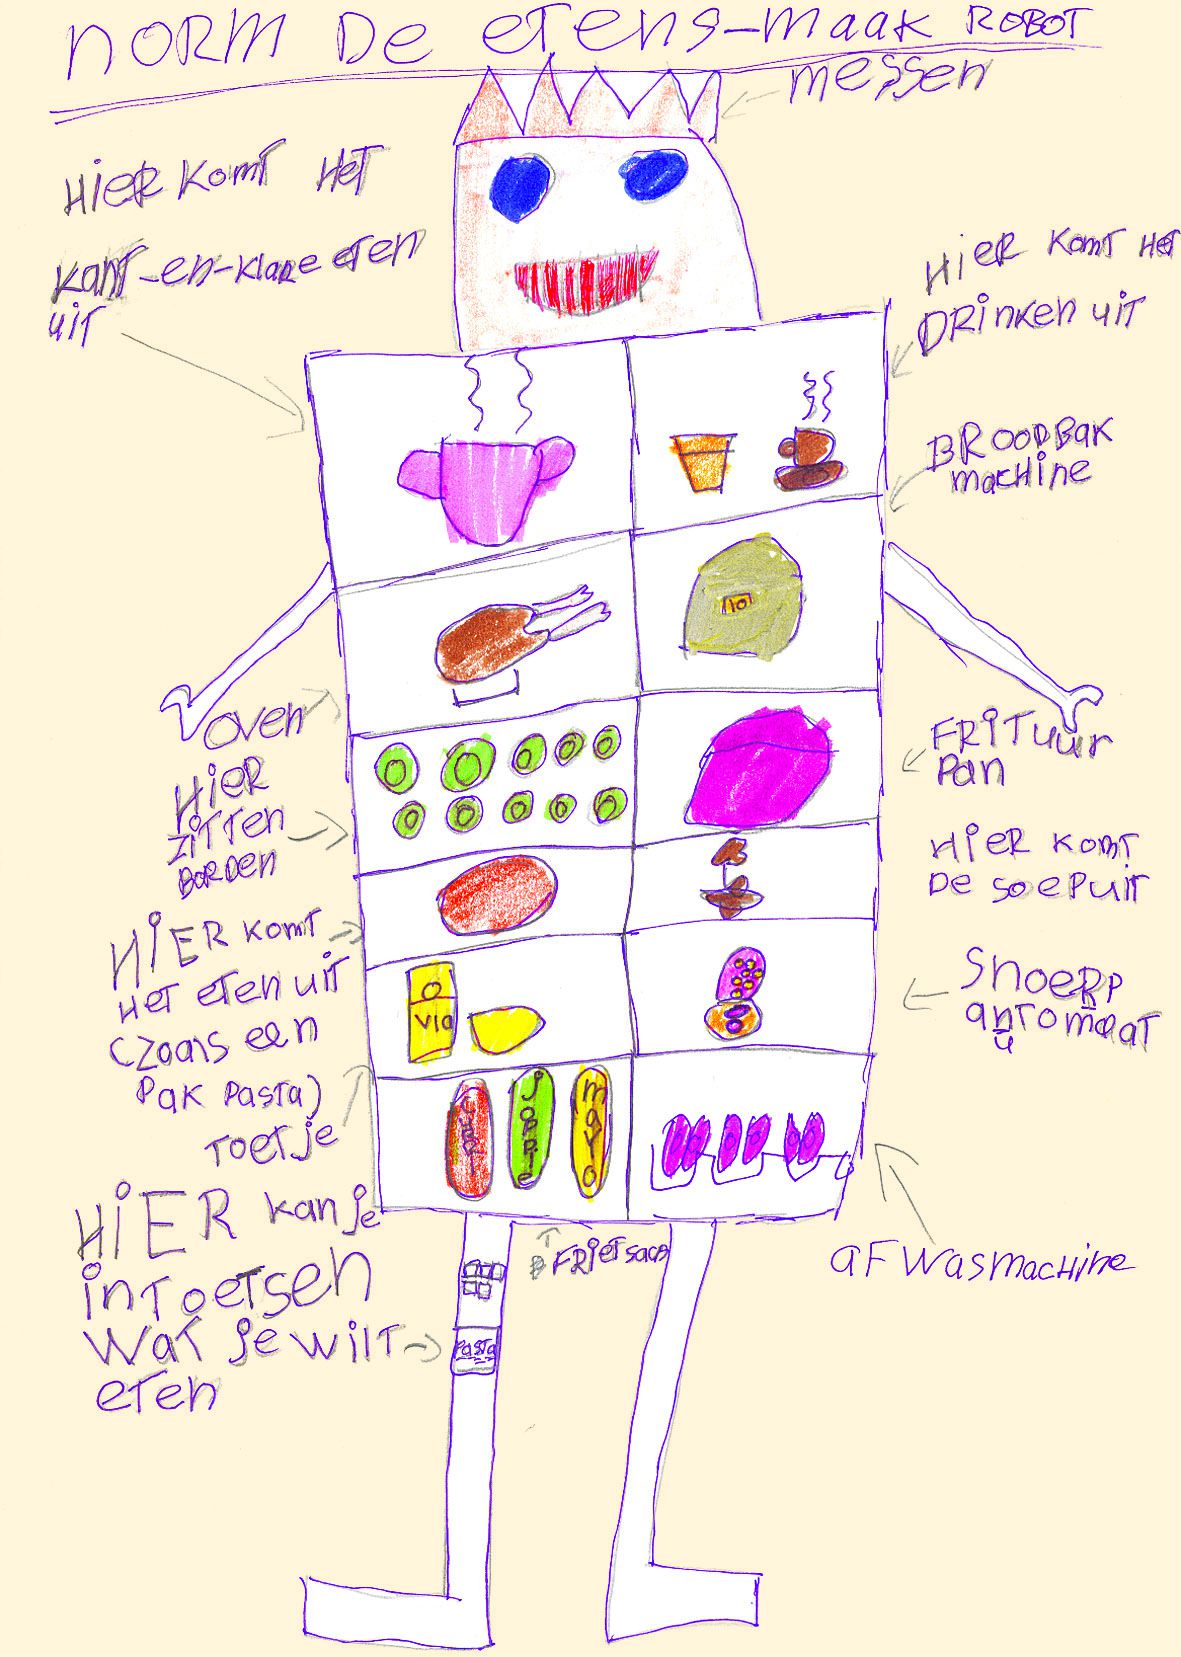 NORM De eTens-maak ROBOT
messen
HieR komt Het
kant-en-klare eten
uit
HieR komt Het
DRinken uit
BROODBak
macHine
oven
HieR
ziTTen
BORDen
FRiTuur
Pan
HieR komt
De soeP uit
HiER komt
Het eten uit
(zoals een
Pak Pasta)
Toetje
SnoeRP
automaat
u
HiER kan je
inToetsen
waT je wilT
eten
FRieTsaus
aFwasmacHine
10
vla
joppie
mayo
Pasta